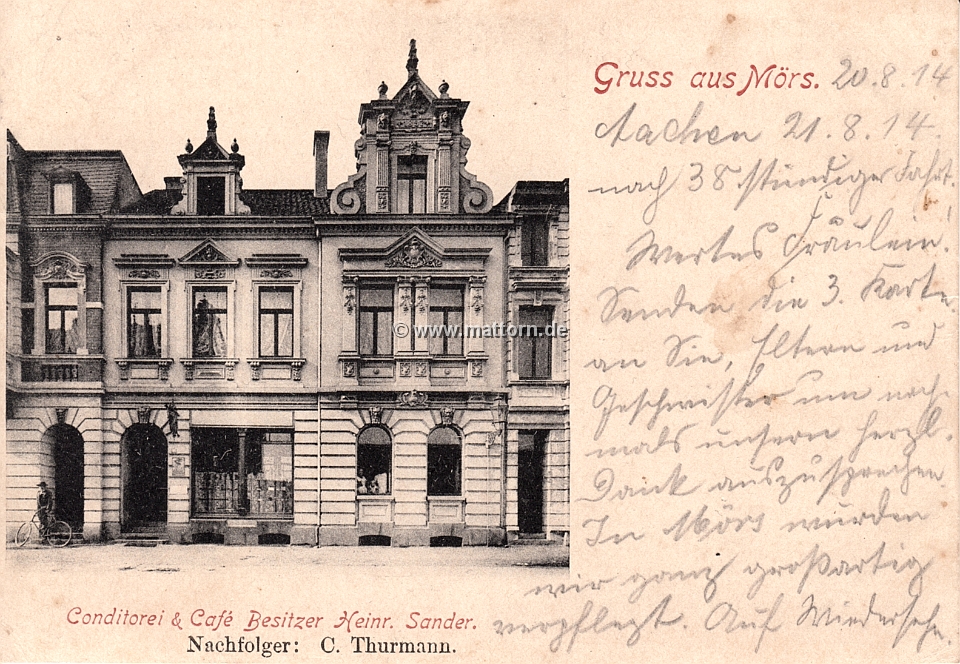 Gruss aus Mörs. 20.8.14
Aachen 21.8.14.
nach 38 stündiger Fahrt.
Wertes Fräulein!
Senden die 3. Karte
an Sie, Eltern und
Geschwister um noch-
mals unsern herzl.
Dank auszusprechen
In Mörs wurden
wir ganz großartig
verpflegt. Auf Wiedersehn.
© www.mattorn.de
Conditorei & Café Besitzer Heinr. Sander.
Nachfolger: C. Thurmann.